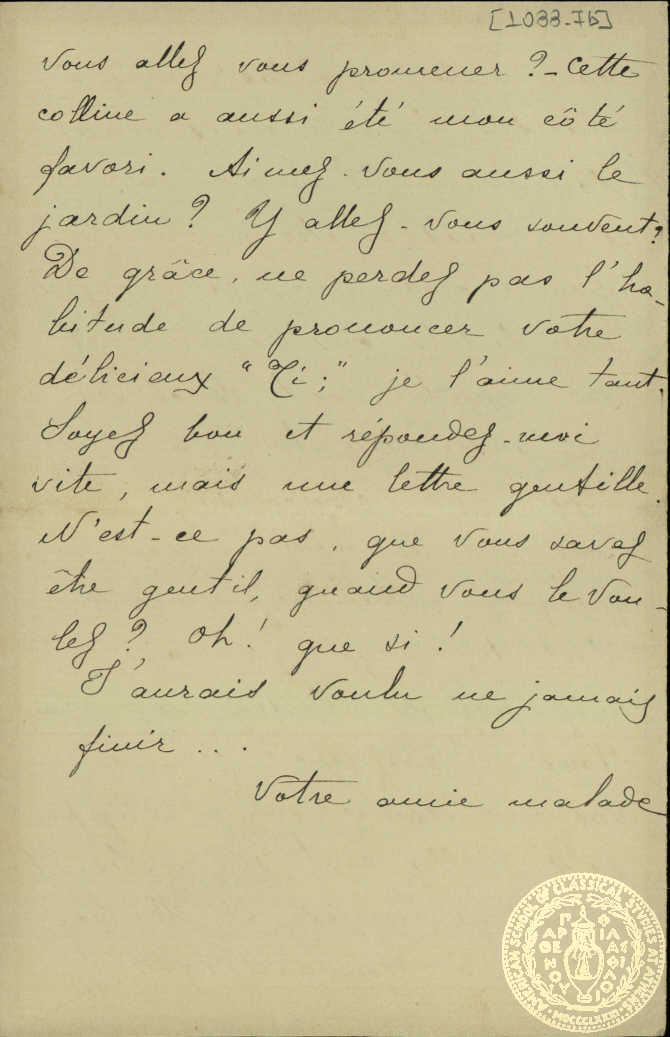 [1033-7b]
vous allez vous promener ? - Cette
colline a aussi été mon côté
favori. Aimez-vous aussi le
jardin ? Y allez-vous souvent ?
De grâce, ne perdez pas l'ha-
bitude de prononcer votre
délicieux "Τί;" je l'aime tant.
Soyez bon et répondez-moi
vite, mais une lettre gentille.
N'est-ce pas, que vous savez
être gentil, quand vous le vou-
lez ? Oh! que si !
J'aurais voulu ne jamais
finir ...
Votre amie malade
AMERICAN SCHOOL OF CLASSICAL STUDIES AT ATHENS
ΠΑΡΘΕΝΟΥ ΦΙΛΑΣ ΦΙΛΟΙ
MDCCCLXXXI